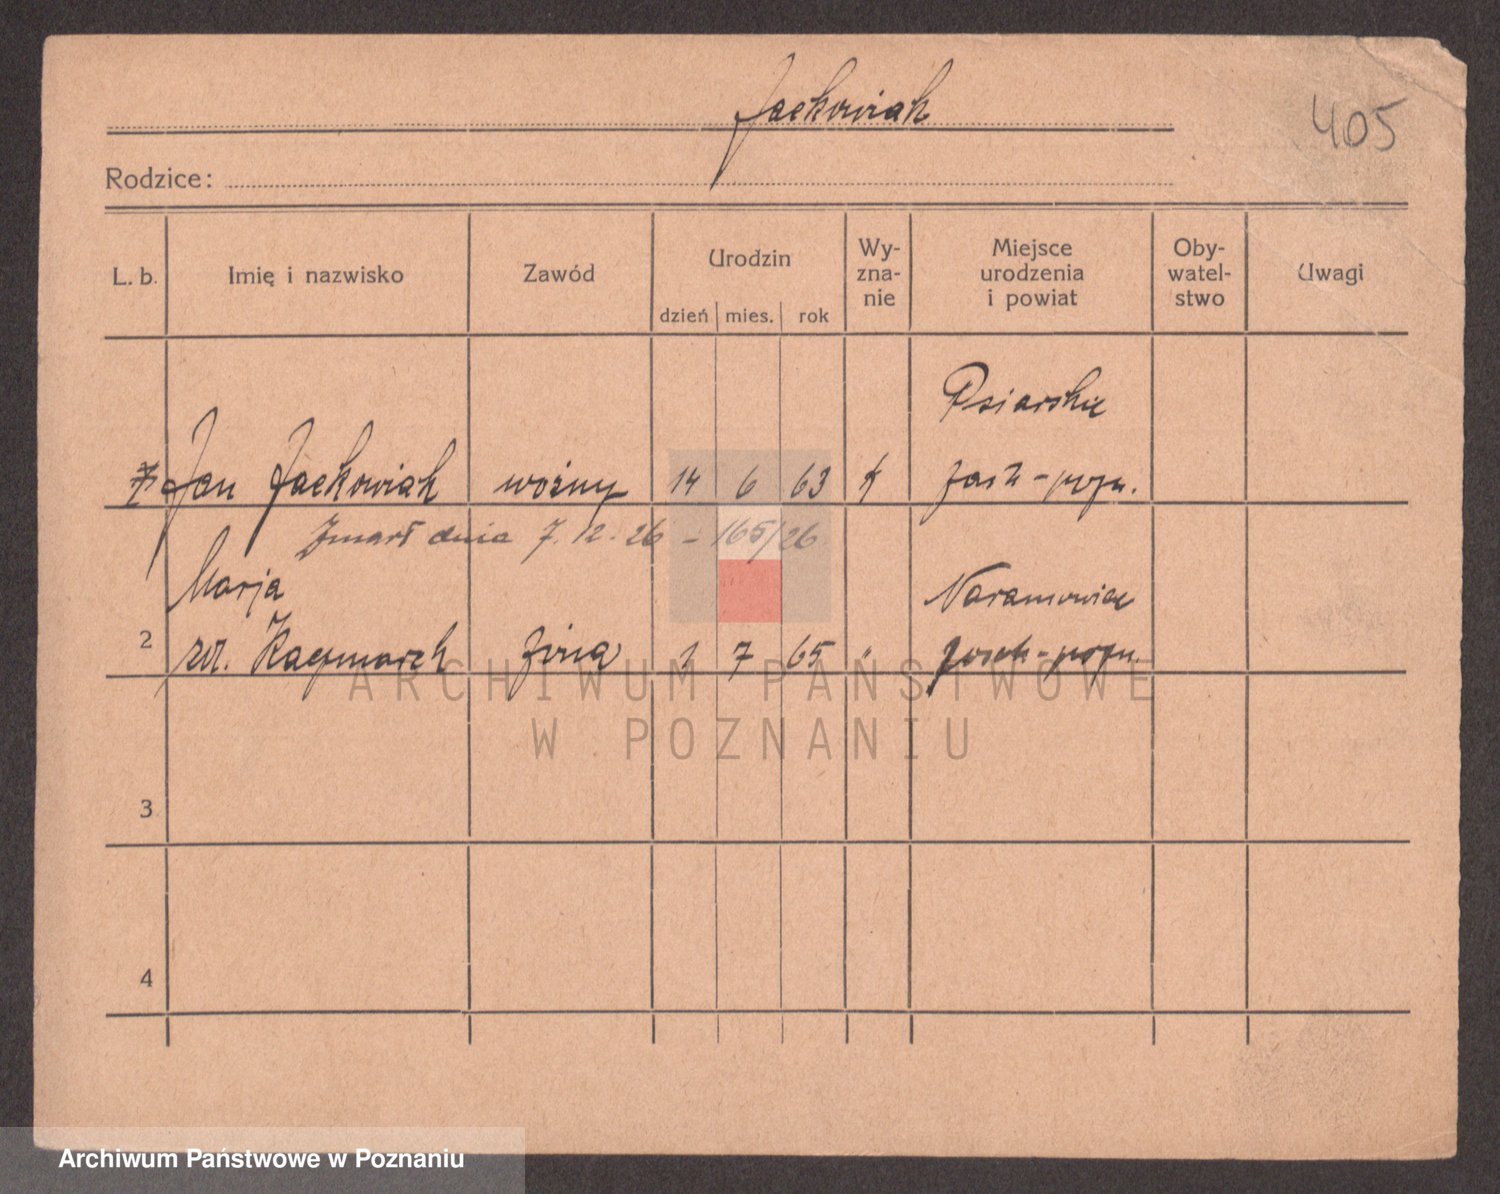 Jackowiak
405
Rodzice:
L. b.
Imię i nazwisko
Zawód
Urodzin
dzień mies. rok
Wy-
zna-
nie
Miejsce
urodzenia
i powiat
Oby-
watel-
stwo
Uwagi
Psiarskie
Jan Jackowiak woźny 14 6 63 k
Zmarł dnia 7. 12. 26 – 165/26
Marja
Naramowice
2 Kaczmarek żona 1 7 65 "
3
4
ARCHIWUM PAŃSTWOWE
W POZNANIU
Archiwum Państwowe w Poznaniu